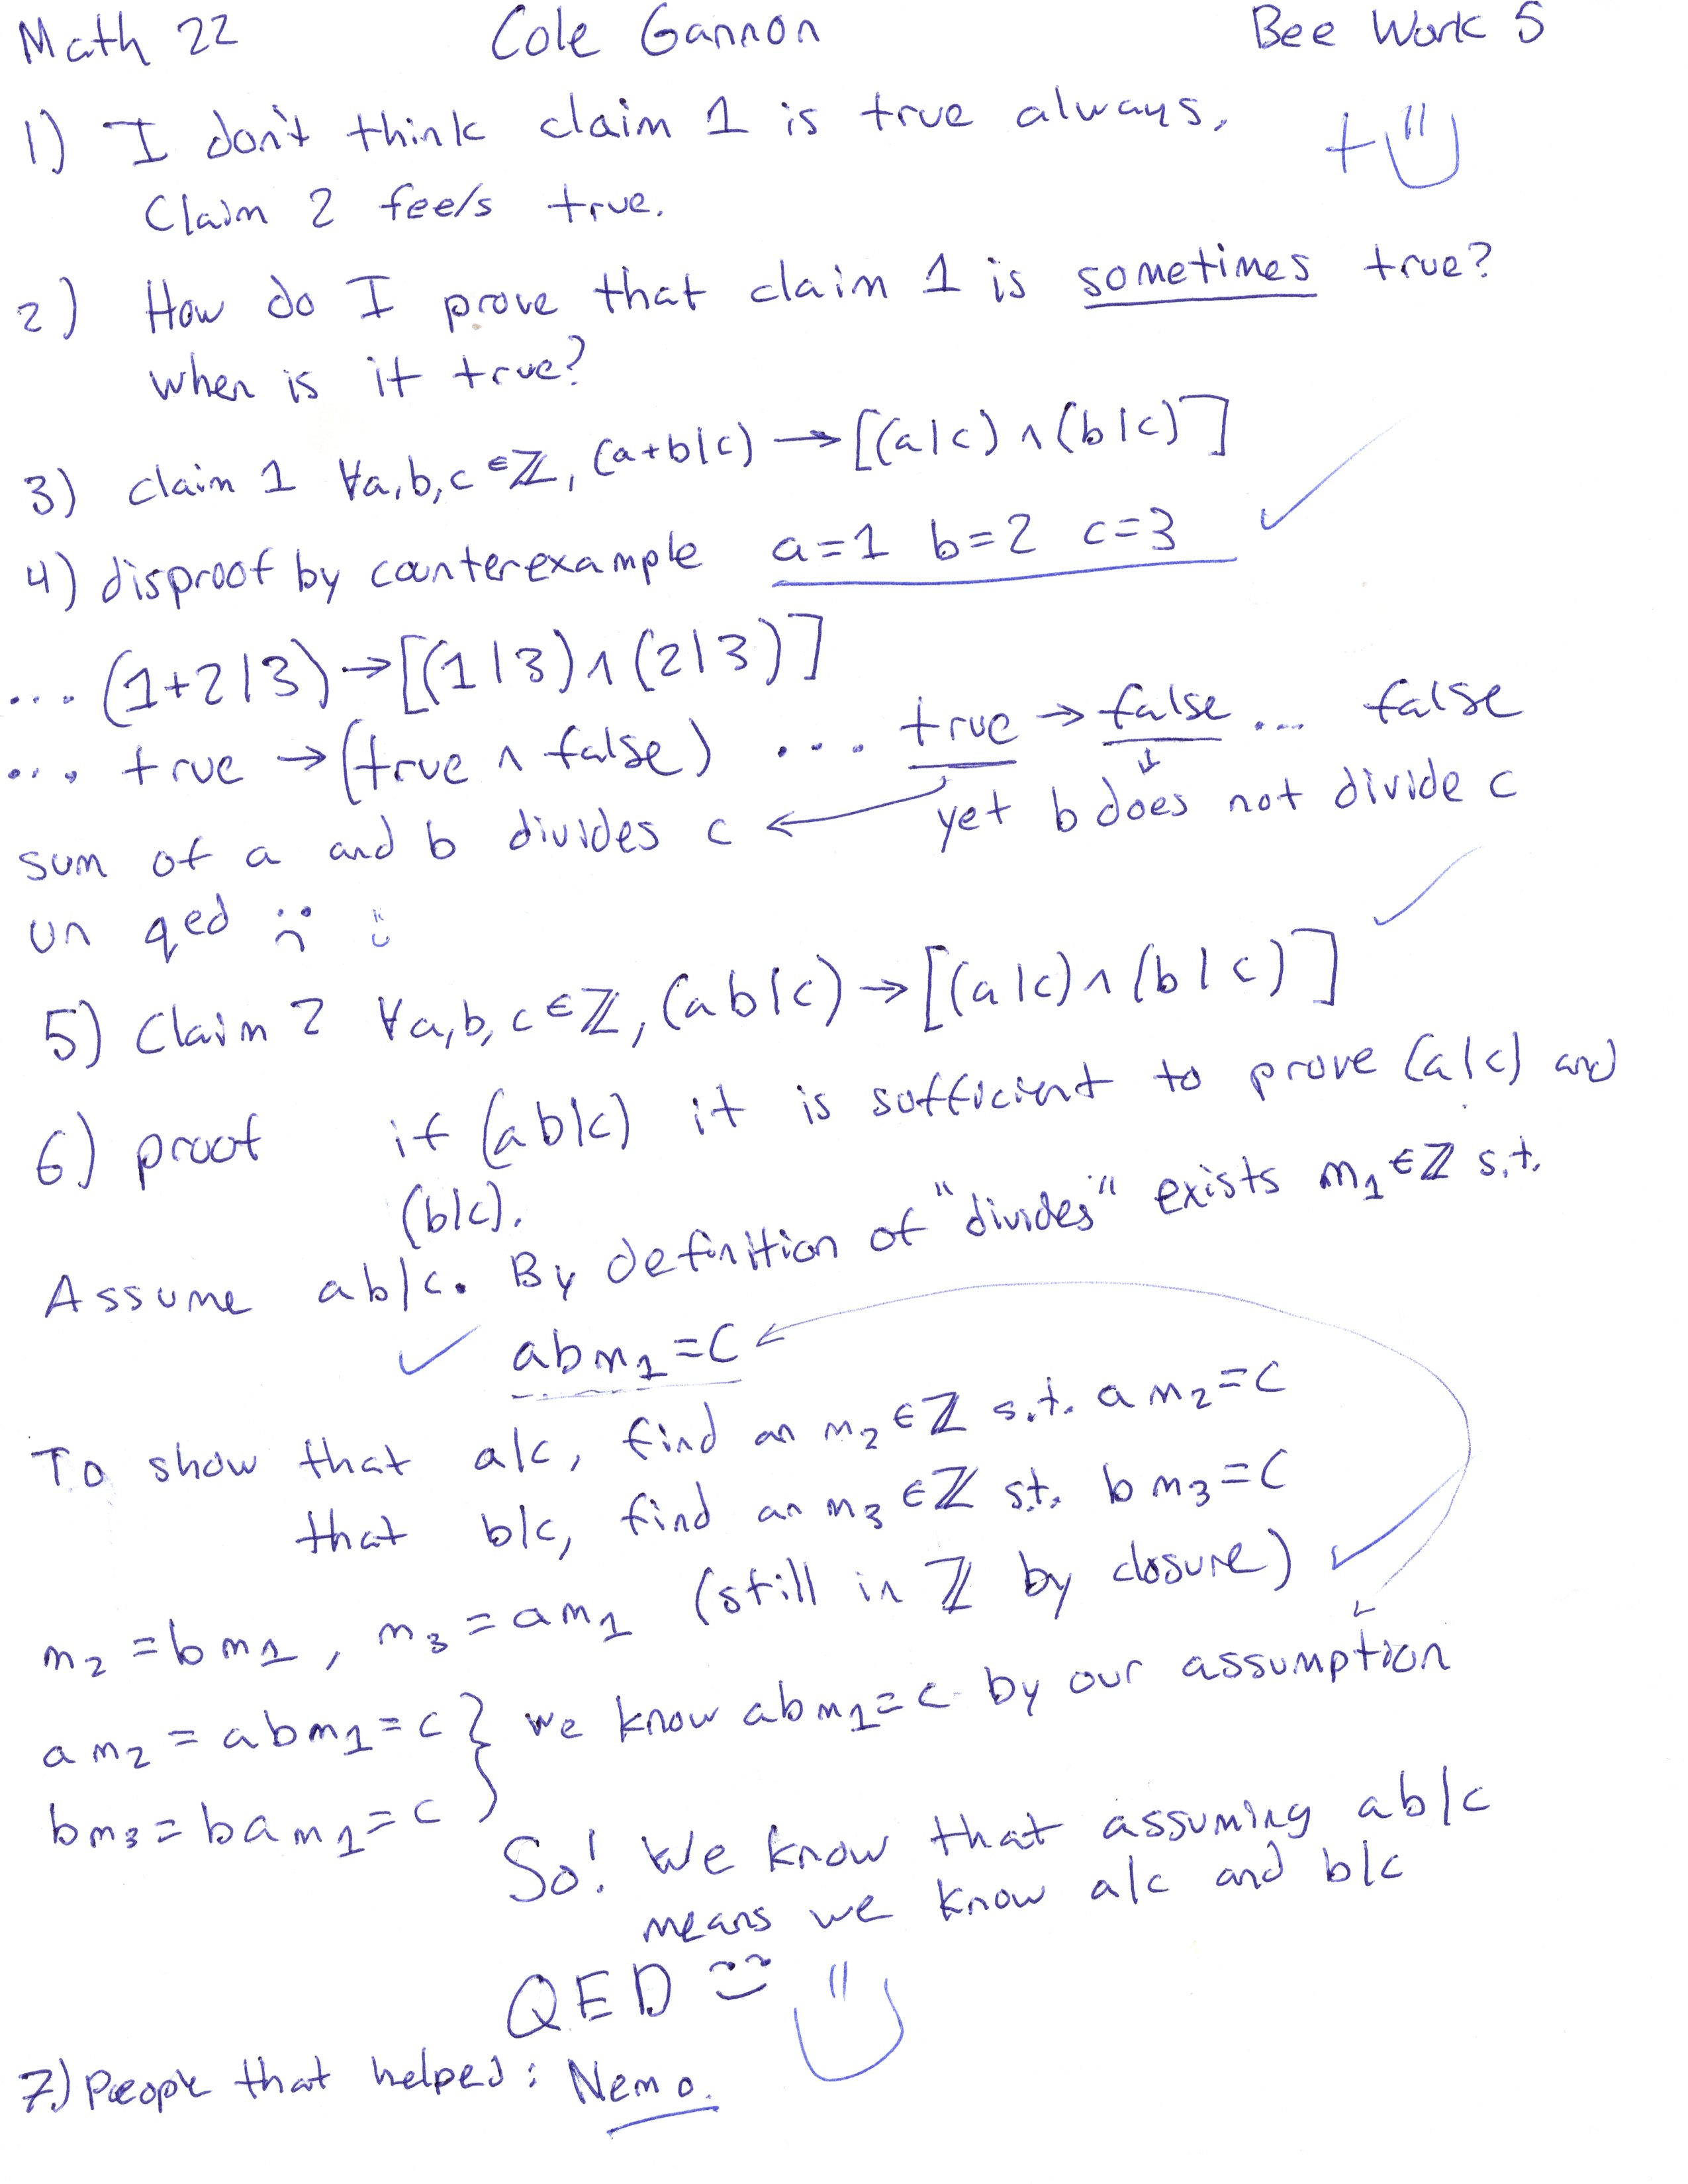 Math 22 Cole Gannon Bee Work 5
1) I don't think claim 1 is true always.
Claim 2 feels true.
2) How do I prove that claim 1 is sometimes true?
when is it true?
3) claim 1 ∀a,b,c ∈ ℤ, (a+b|c) → [(a|c) ∧ (b|c)]
4) disproof by counterexample a=1 b=2 c=3
... (1+2|3) → [(1|3) ∧ (2|3)]
... true → (true ∧ false) ... true → false ... false
sum of a and b divides c ← yet b does not divide c
un qed
5) Claim 2 ∀a,b,c ∈ ℤ, (ab|c) → [(a|c) ∧ (b|c)]
6) proof if (ab|c) it is sufficient to prove (a|c) and
(b|c).
Assume ab|c. By definition of "divides" exists m₁ ∈ ℤ s.t.
abm₁ = c
To show that a|c, find an m₂ ∈ ℤ s.t. am₂ = c
that b|c, find an m₃ ∈ ℤ s.t. bm₃ = c
m₂ = bm₁, m₃ = am₁ (still in ℤ by closure)
am₂ = abm₁ = c } we know abm₁ = c by our assumption
bm₃ = bam₁ = c
So! We know that assuming ab|c
means we know a|c and b|c
QED
7.) People that helped: Nemo.